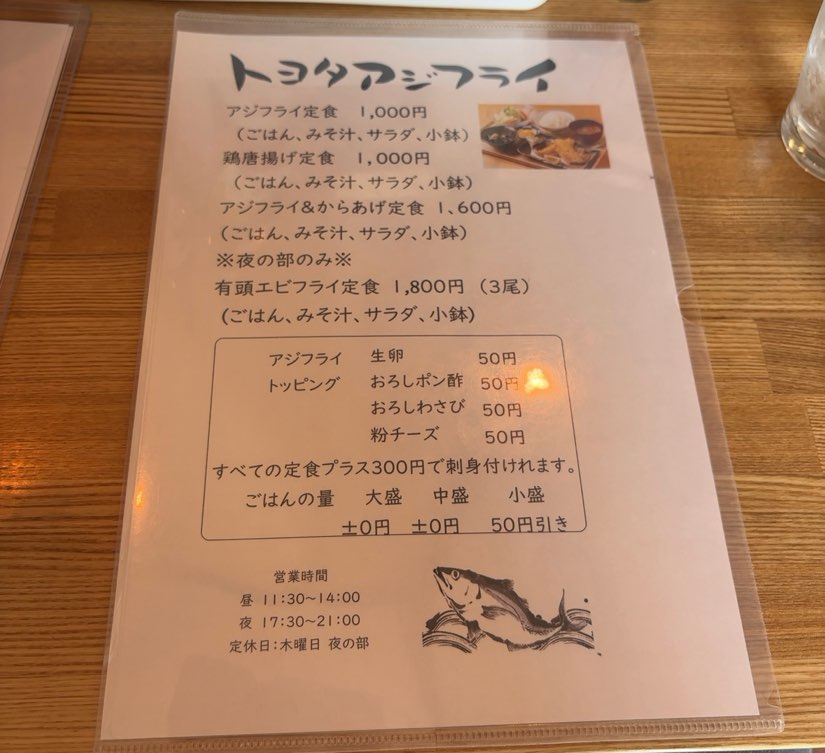 トヨタアジフライ
アジフライ定食 1,000円
(ごはん、みそ汁、サラダ、小鉢)
鶏唐揚げ定食 1,000円
(ごはん、みそ汁、サラダ、小鉢)
アジフライ&からあげ定食 1,600円
(ごはん、みそ汁、サラダ、小鉢)
※夜の部のみ※
有頭エビフライ定食 1,800円 (3尾)
(ごはん、みそ汁、サラダ、小鉢)
アジフライ 生卵 50円
トッピング おろしポン酢 50円
おろしわさび 50円
粉チーズ 50円
すべての定食プラス300円で刺身付けれます。
ごはんの量 大盛 中盛 小盛
±0円 ±0円 50円引き
営業時間
昼 11:30~14:00
夜 17:30~21:00
定休日:木曜日 夜の部